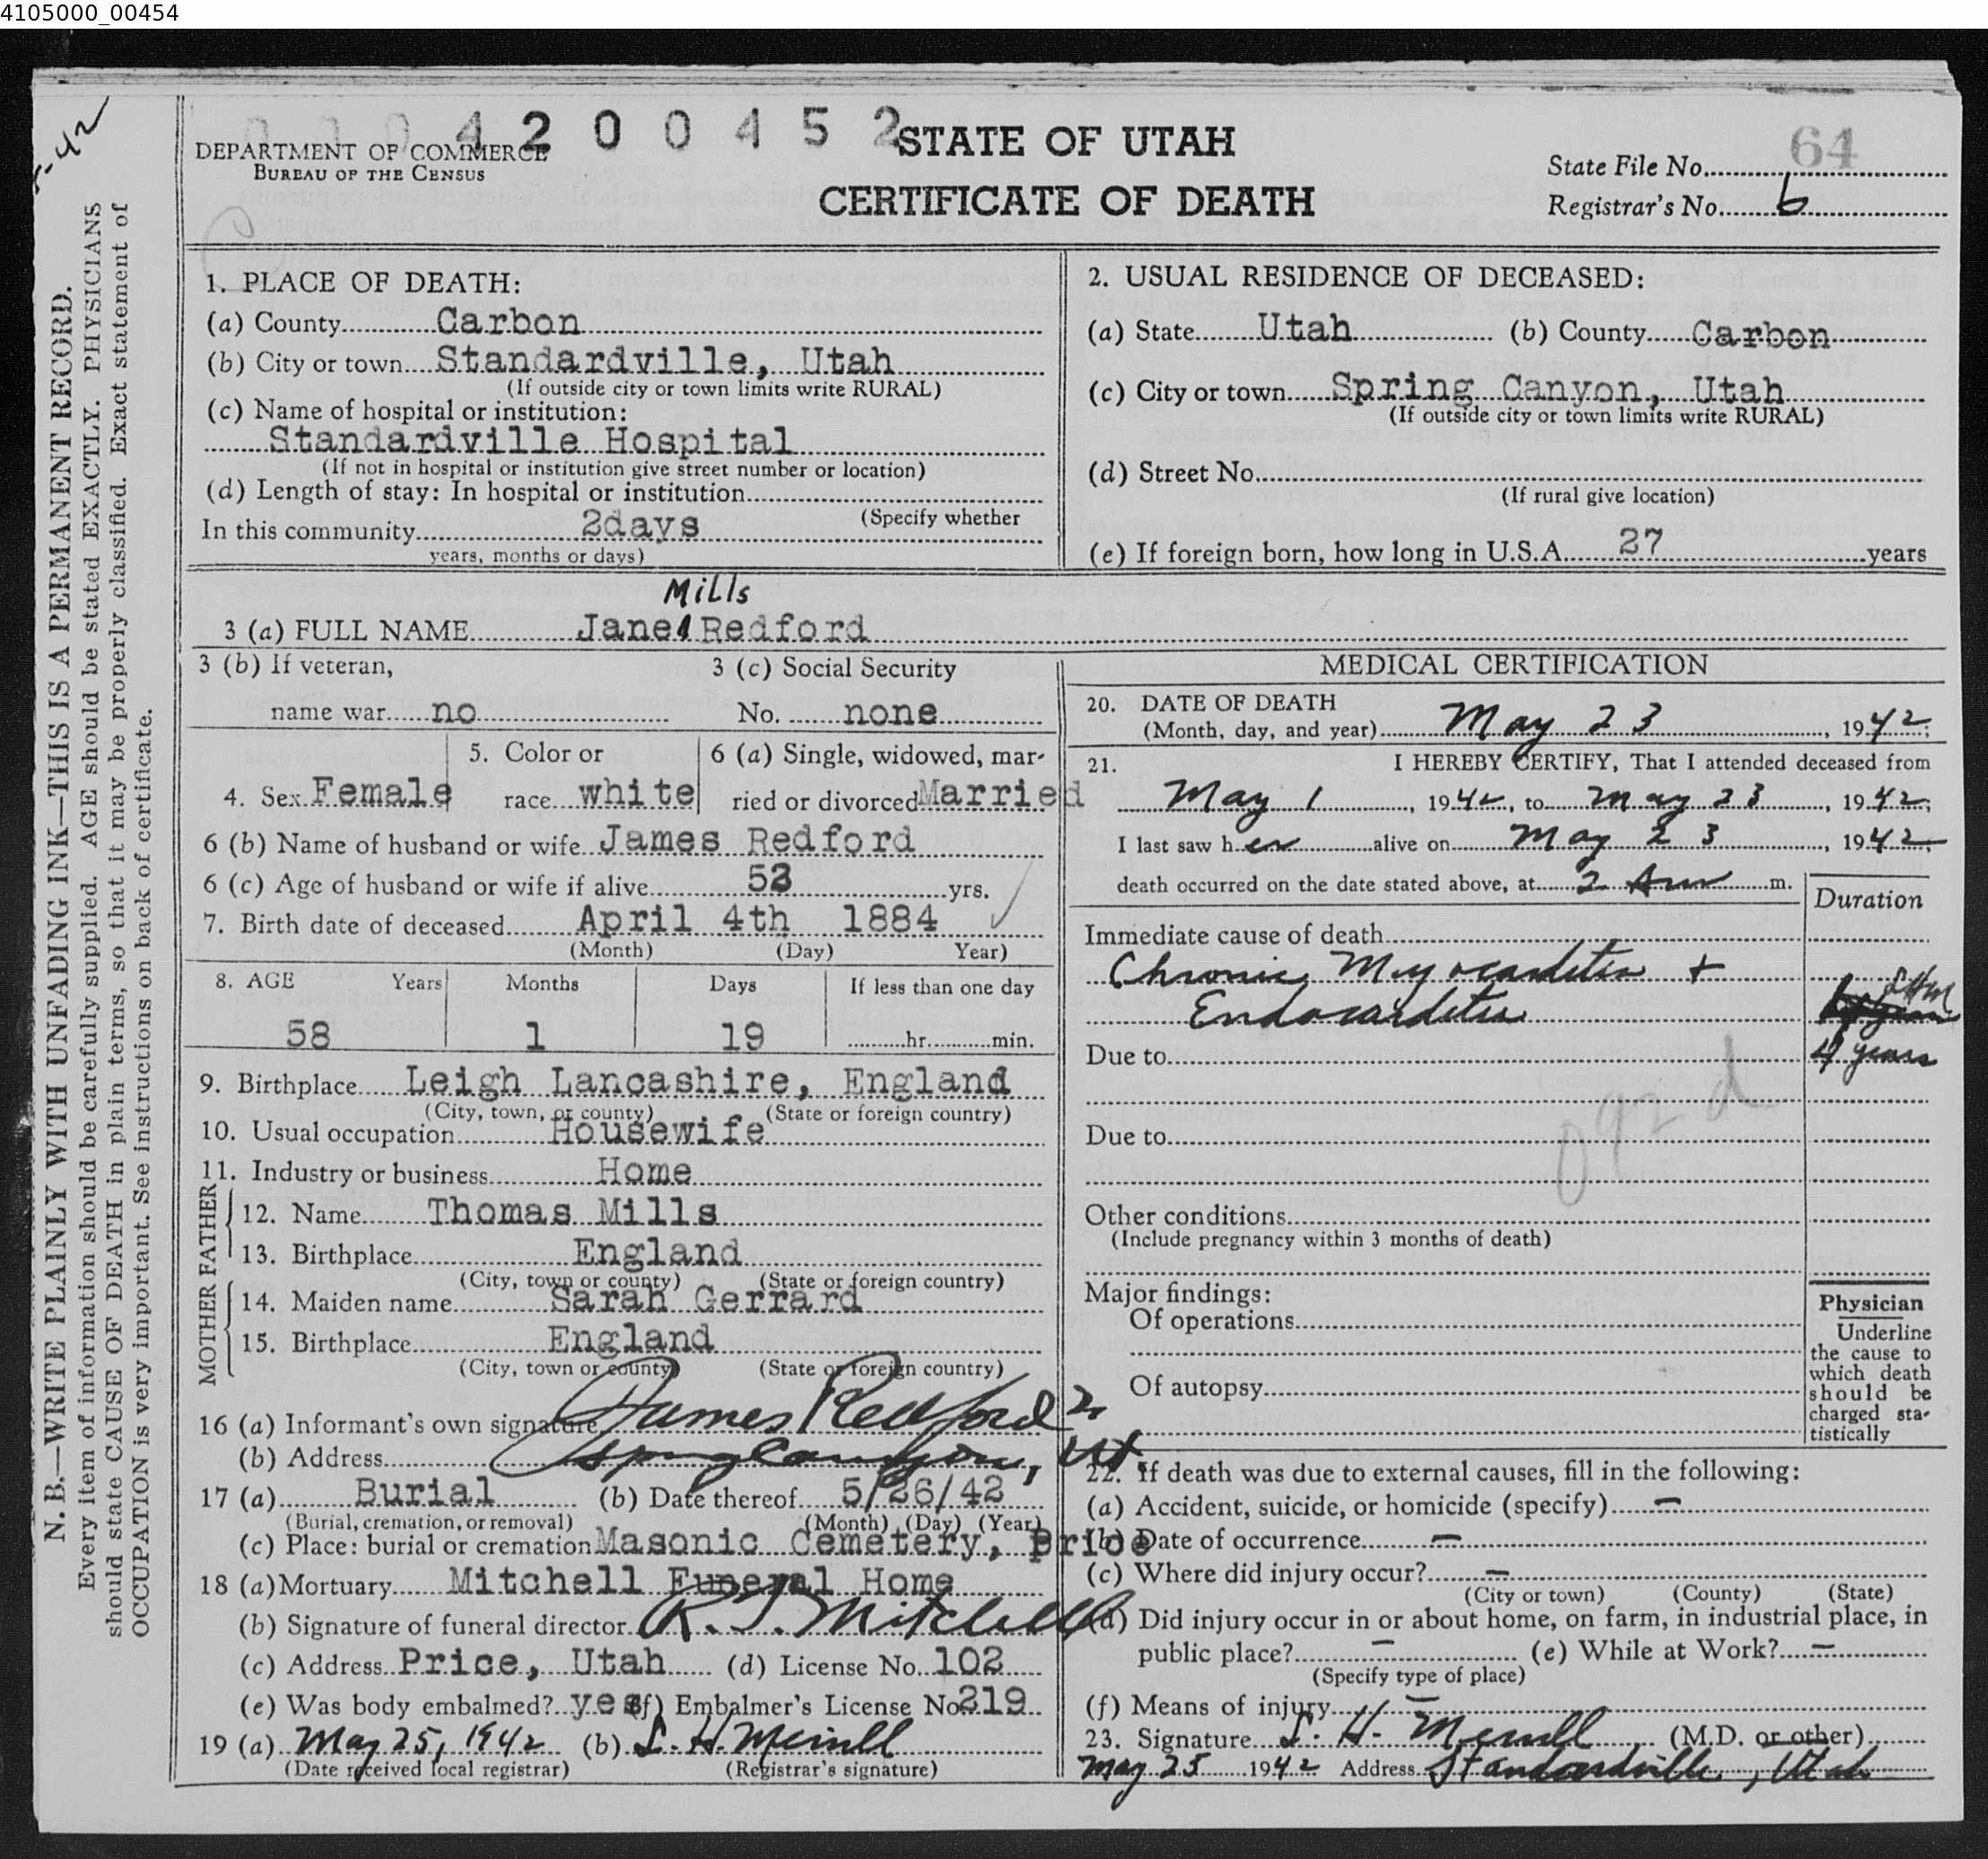 4105000_00454
4 2 0 0 4 5 2
DEPARTMENT OF COMMERCE
BUREAU OF THE CENSUS
STATE OF UTAH
CERTIFICATE OF DEATH
64
State File No.
Registrar's No. 6
-42
N. B.—WRITE PLAINLY WITH UNFADING INK—THIS IS A PERMANENT RECORD.
Every item of information should be carefully supplied. AGE should be stated EXACTLY. PHYSICIANS
should state CAUSE OF DEATH in plain terms, so that it may be properly classified. Exact statement of
OCCUPATION is very important. See instructions on back of certificate.
1. PLACE OF DEATH:
(a) County Carbon
(b) City or town Standardville, Utah
(If outside city or town limits write RURAL)
(c) Name of hospital or institution:
Standardville Hospital
(If not in hospital or institution give street number or location)
(d) Length of stay: In hospital or institution
(Specify whether
In this community 2days
years, months or days)
2. USUAL RESIDENCE OF DECEASED:
(a) State Utah (b) County Carbon
(c) City or town Spring Canyon, Utah
(If outside city or town limits write RURAL)
(d) Street No.
(If rural give location)
(e) If foreign born, how long in U.S.A. 27 years
Mills
3 (a) FULL NAME Jane Redford
3 (b) If veteran,
name war no
3 (c) Social Security
No. none
4. Sex Female
5. Color or
race white
6 (a) Single, widowed, mar-
ried or divorced Married
6 (b) Name of husband or wife James Redford
6 (c) Age of husband or wife if alive yrs.
7. Birth date of deceased April 4th 1884
(Month) (Day) Year)
8. AGE Years Months Days If less than one day
58 1 19 hr. min.
9. Birthplace Leigh Lancashire, England
(City, town, or county) (State or foreign country)
10. Usual occupation Housewife
11. Industry or business Home
FATHER
12. Name Thomas Mills
13. Birthplace England
(City, town or county) (State or foreign country)
MOTHER
14. Maiden name Sarah Gerrard
15. Birthplace England
(City, town or county) (State or foreign country)
16 (a) Informant's own signature James Redford
(b) Address Canyon, Ut.
17 (a) Burial (b) Date thereof 5/26/42
(Burial, cremation, or removal) (Month) (Day) (Year)
(c) Place: burial or cremation Masonic Cemetery, Price
18 (a) Mortuary Mitchell Funeral Home
(b) Signature of funeral director R. J. Mitchell
(c) Address Price, Utah (d) License No. 102
(e) Was body embalmed? yes (f) Embalmer's License No. 219
19 (a) May 25, 1942 (b) L. H. Merrill
(Date received local registrar) (Registrar's signature)
MEDICAL CERTIFICATION
20. DATE OF DEATH
(Month, day, and year) May 23, 1942
21. I HEREBY CERTIFY, That I attended deceased from
May 1, 1942, to May 23, 1942;
I last saw her alive on May 23, 1942;
death occurred on the date stated above, at 2 Am m.
Duration
Immediate cause of death
Chronic Myocarditis +
Endocarditis
LHM
4 years
Due to
Due to
092 d
Other conditions
(Include pregnancy within 3 months of death)
Major findings:
Of operations
Of autopsy
Physician
Underline
the cause to
which death
should be
charged sta-
tistically
22. If death was due to external causes, fill in the following:
(a) Accident, suicide, or homicide (specify) —
(b) Date of occurrence —
(c) Where did injury occur? —
(City or town) (County) (State)
(d) Did injury occur in or about home, on farm, in industrial place, in
public place? — (e) While at Work? —
(Specify type of place)
(f) Means of injury —
23. Signature L. H. Merrill (M.D. or other)
May 25 1942 Address Standardville, Utah